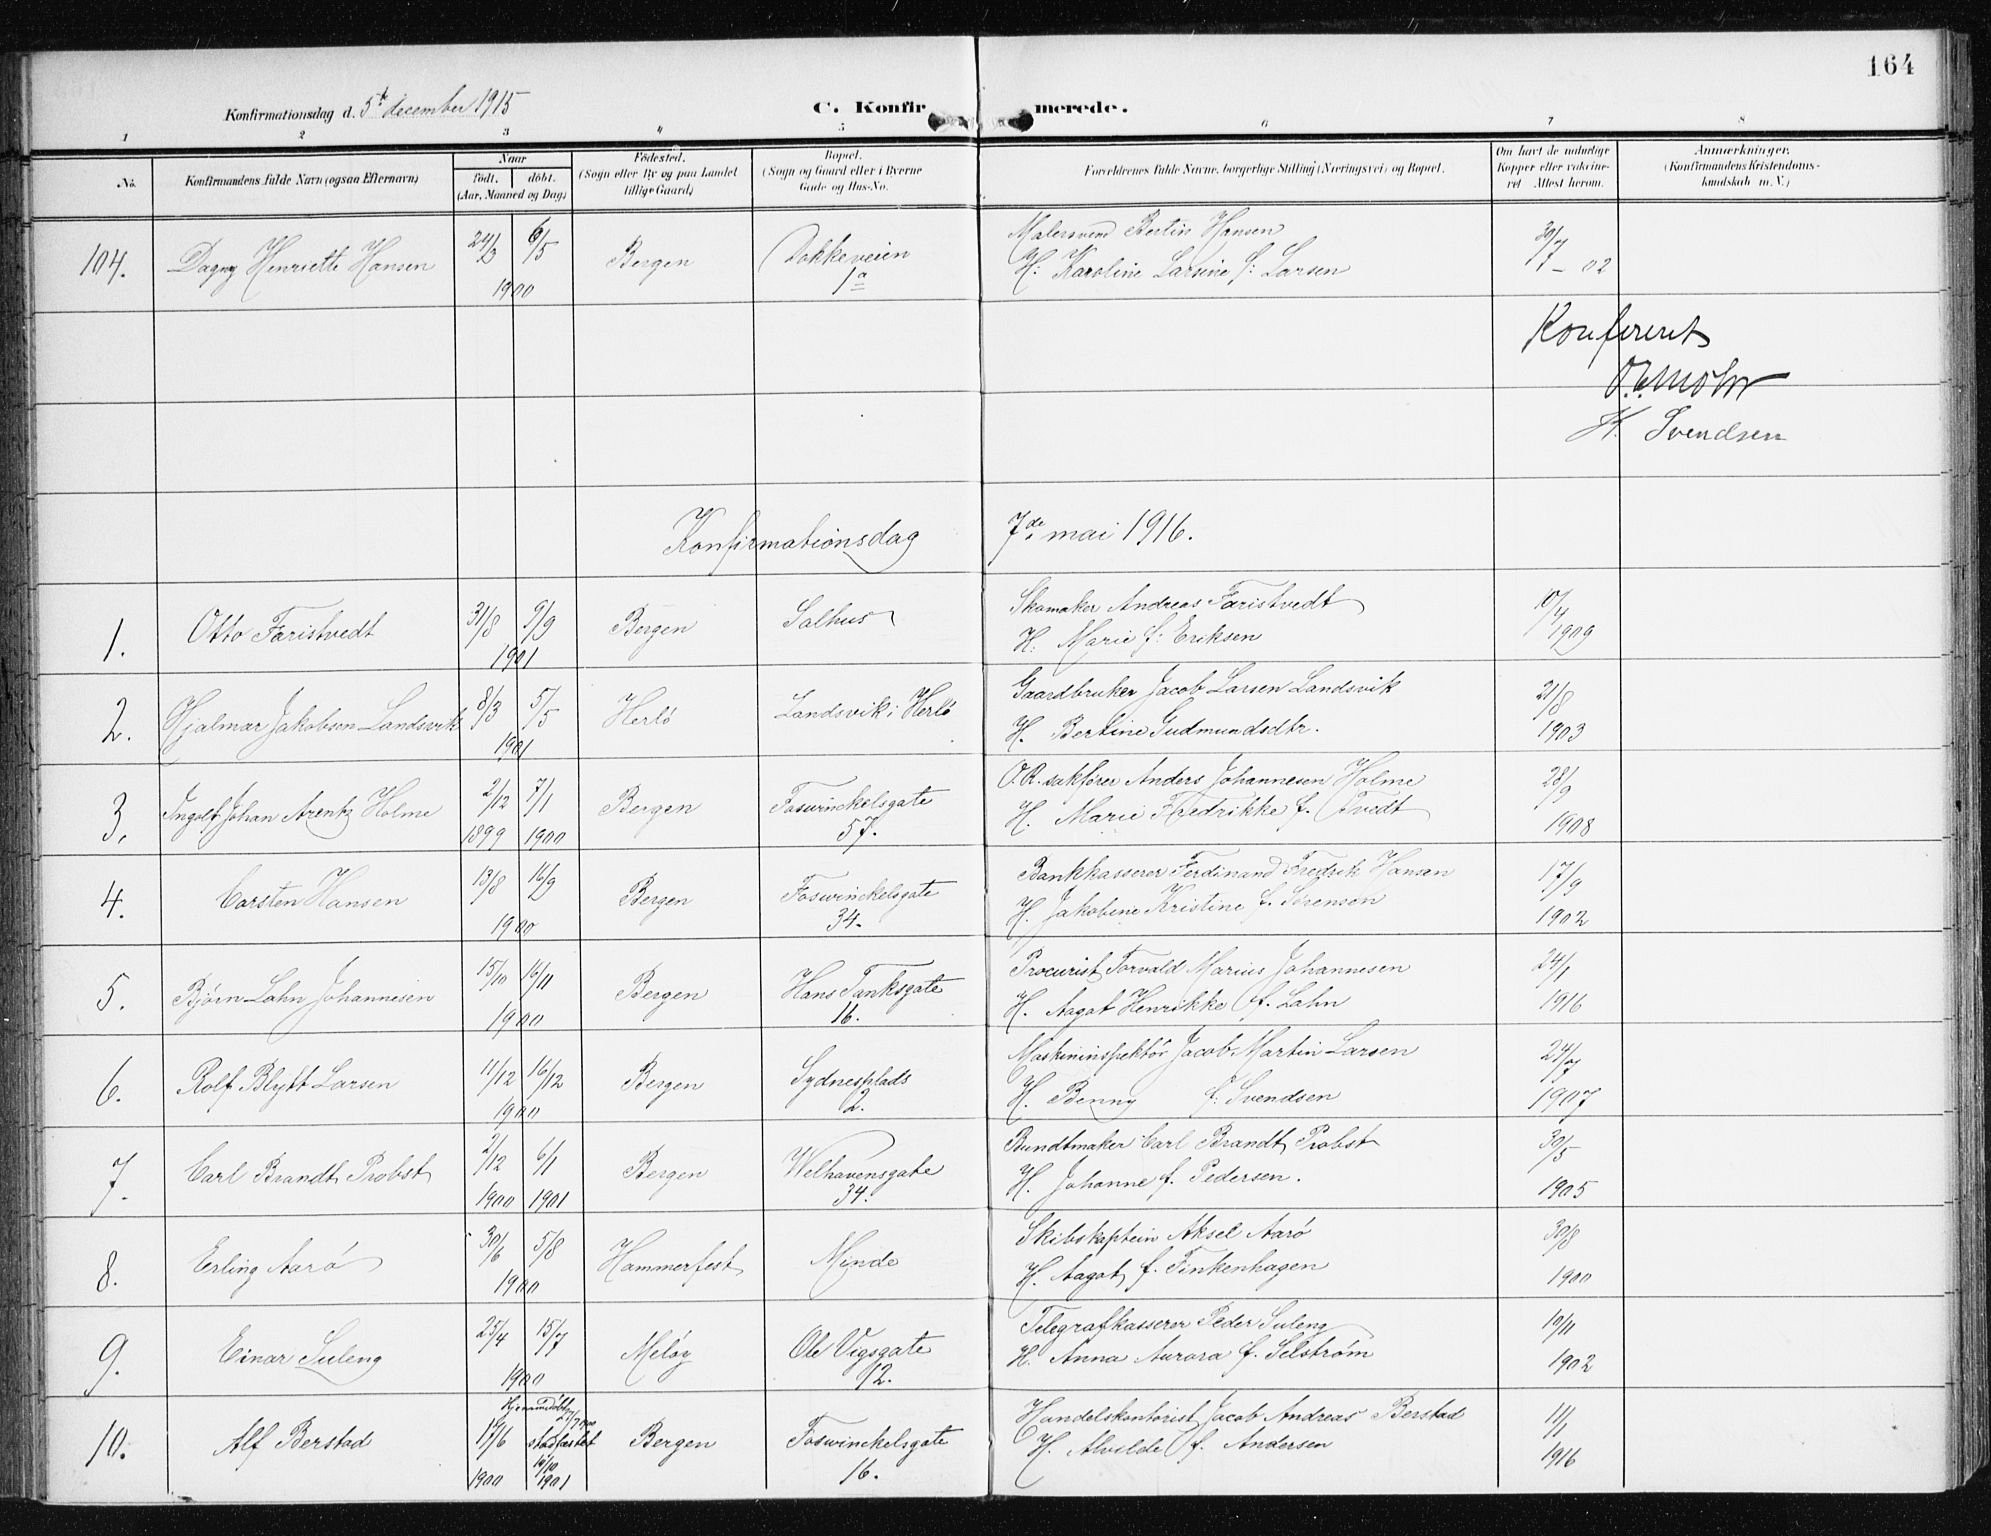 164
Konfirmationsdag d. 5te december 1915
C. Konfirmerede.
1 2 3 4 5 6 7 8
No.
Konfirmandens fulde Navn (ogsaa Efternavn)
Naar
født. døbt.
(Aar, Maaned og Dag)
Fødested.
(Sogn eller By og paa Landet
tillige Gaard)
Bopæl.
(Sogn og Gaard eller i Byerne
Gade og Hus-No.
Forældrenes fulde Navne, borgerlige Stilling (Næringsvei) og Bopæl.
Om havt de naturlige
Kopper eller vakcine-
ret Attest herom.
Anmærkninger.
(Konfirmandens Kristendoms-
kundskab m. V.)
104. Dagny Henriette Hansen 24/3 6/5 1900 Bergen Dokkeveien 1a
Malersvend Bertin Hansen
H: Karoline Larsine f: Larsen
30/7 - 02
Konfereret
H. Svendsen
Konfirmationsdag 7de mai 1916.
1. Otto Faristvedt 31/8 9/9 1901 Bergen Salhus
Skomaker Andreas Faristvedt
H. Marie f: Eriksen
10/4 1909
2. Hjalmar Jakobsen Landsvik 8/3 5/5 1901 Herlö Landsvik i Herlö
Gaardbruker Jacob Larsen Landsvik
H. Bertine Gudmundsdtr.
21/8 1903
3. Ingolf Johan Arentz Holme 2/12 1899 7/1 1900 Bergen Foswinckelsgate 57.
O.R. sakfører Anders Johannesen Holme
H. Marie Fredrikke f. Tvedt
28/9 1908
4. Carsten Hansen 13/8 16/9 1900 Bergen Foswinckelsgate 34.
Bankkasserer Ferdinand Fredrik Hansen
H. Jakobine Kristine f. Sörensen
17/9 1902
5. Bjørn Lahn Johannesen 15/10 16/11 1900 Bergen Hans Tanksgate 16.
Procurist Torvald Marius Johannesen
H. Aagot Henrikke f. Lahn
24/1 1916
6. Rolf Blytt Larsen 11/12 16/12 1900 Bergen Sydnesplads 2.
Maskininspektör Jacob Martin Larsen
H. Benny f: Svendsen
24/7 1907
7. Carl Brandt Probst 2/12 1900 6/1 1901 Bergen Welhavensgate 34.
Bundtmaker Carl Brandt Probst
H. Johanne f. Pedersen.
30/5 1905
8. Erling Aarö 30/6 5/8 1900 Hammerfest Minde
Skibskaptein Aksel Aarö
H. Aagot f. Finkenhagen
30/8 1900
9. Einar Suleng 25/4 15/7 1900 Meløy Ole Vigsgate 12.
Telegrafkasserer Peder Suleng
H. Anna Aurora f. Selström
10/11 1902
10. Alf Berstad 17/6 1900 Hjemmedöbt 27/7 1900 stadfæstet 10/10 1901 Bergen Foswinckelsgate 16.
Handelskontorist Jacob Andreas Berstad
H. Alvilde f. Andersen
11/1 1916